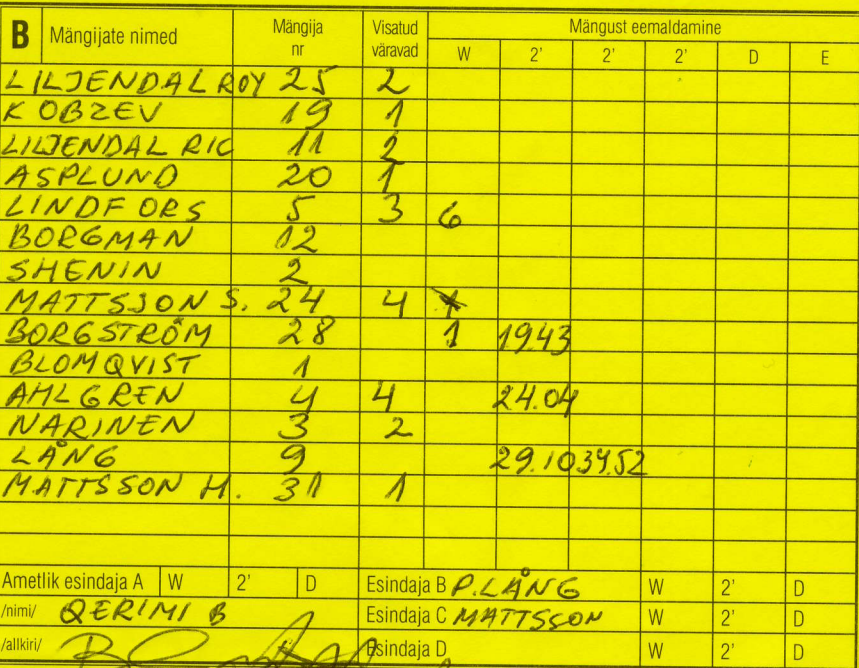 B Mängijate nimed Mängija nr Visatud väravad Mängust eemaldamine
W 2' 2' 2' D E
LILJENDAL ROY 25 2
KOBZEV 19 1
LILJENDAL RIC 11 2
ASPLUND 20 1
LINDFORS 5 3 6
BORGMAN 12
SHENIN 2
MATTSSON S. 24 4
BORGSTRÖM 28 1 19.43
BLOMQVIST 1
AHLGREN 4 4 24.04
NARINEN 3 2
LÅNG 9 29.10 34.52
MATTSSON H. 31 1
Ametlik esindaja A W 2' D Esindaja B P.LÅNG W 2' D
/nimi/ QERIMI B Esindaja C MATTSSON W 2' D
/allkiri/ Esindaja D W 2' D